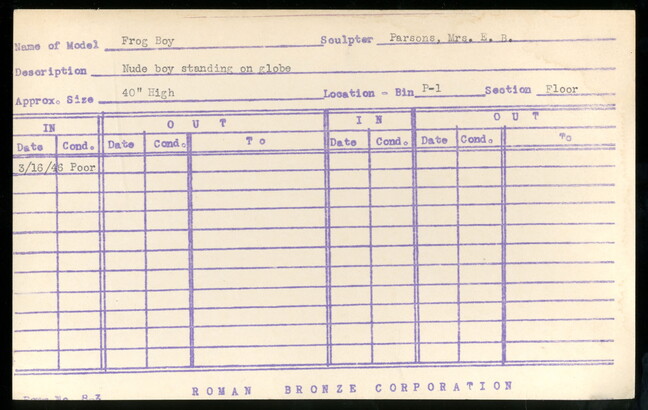 Name of Model Frog Boy Sculptor Parsons, Mrs. E. B.
Description Nude boy standing on globe
Approx. Size 40" High Location - Bin P-1 Section Floor
IN OUT IN OUT
Date Cond. Date Cond. To Date Cond. Date Cond. To
3/16/46 Poor
No. 8-3 ROMAN BRONZE CORPORATION